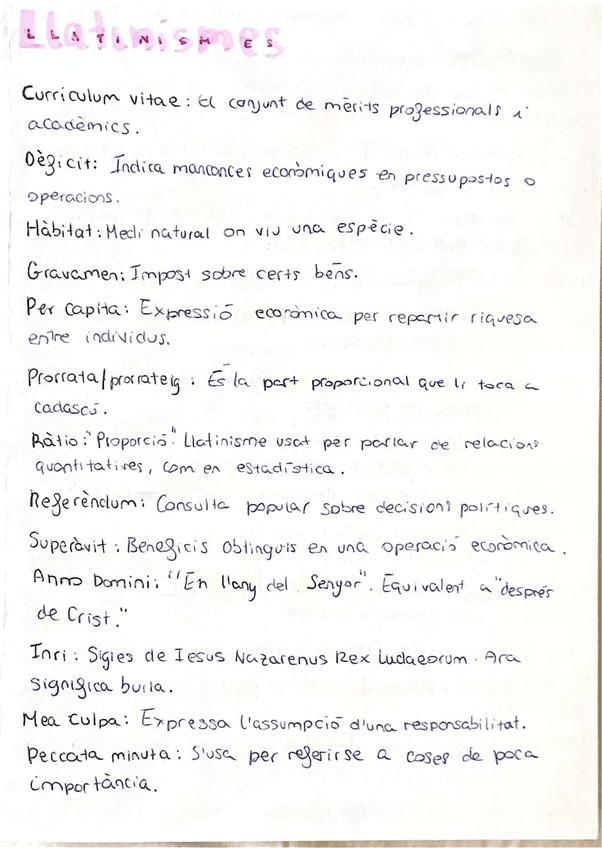 Llatinismes
LLATINISMES
Currículum vitae: El conjunt de mèrits professionals i
acadèmics.
Dèficit: Indica mancances econòmiques en pressupostos o
operacions.
Hàbitat: Medi natural on viu una espècie.
Gravamen: Impost sobre certs bens.
Per capita: Expressió econòmica per repartir riquesa
entre individus.
Prorrata/prorrateig: És la part proporcional que li toca a
cadascú.
Ràtio: "Proporció". Llatinisme usat per parlar de relacions
quantitatives, com en estadística.
Referèndum: Consulta popular sobre decisions polítiques.
Superàvit: Beneficis obtinguts en una operació econòmica.
Anno Domini: "En l'any del Senyor". Equivalent a "després
de Crist."
Inri: Sigles de Iesus Nazarenus Rex Iudaeorum. Ara
significa burla.
Mea culpa: Expressa l'assumpció d'una responsabilitat.
Peccata minuta: S'usa per referirse a coses de poca
importància.